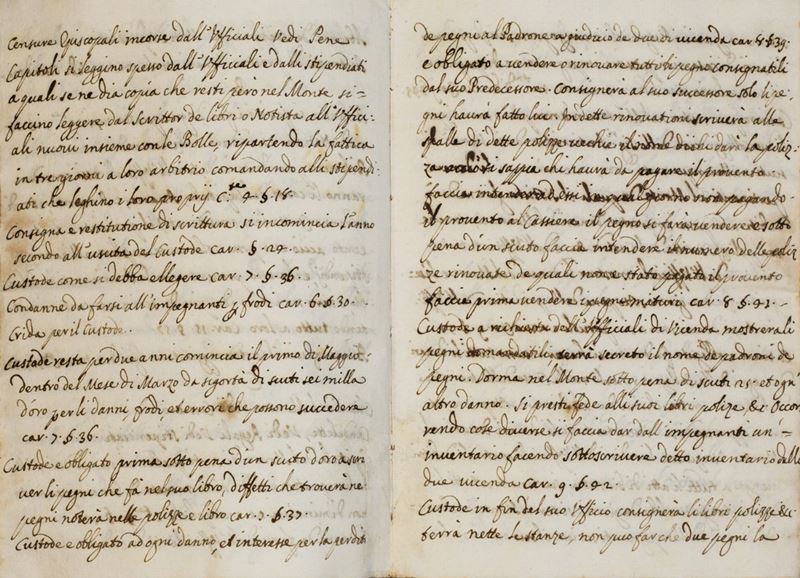 Censure Episcopali incorse dall'Ufficiali Vedi Pene
Capitoli si leggino spesso dall'Ufficiali e dalli stipendiati
a quali se ne dia copia che resti pero nel Monte si-
faccino leggere dal Scrittor de libri o Notista all'Uffici-
ali nuovi insieme con le Bolle, ripartendo la fattica
in tre giorni a loro arbitrio comandando alli stipendi-
ati che leghino i loro proprij C. 4. §. 18.
Consigna e restitutione di scrittura si incomincia l'anno
secondo all'uscita del Custode car. §. 24.
Custode come si debba ellegere car. 7. §. 36
Condanne da farsi all'impegnanti p frodi car. 6. §. 30.
Crida per il Custode.
Custode resta per due anni comincia il primo di Maggio.
dentro del Mese di Marzo da sigortà di scuti sei milla
d'oro per li danni, frodi, et errori che possono succedere
car. 7. §. 36.
Custode e obligato prima sotto pena d'un scuto d'oro a scri
ver li pegni che fà nel suo libro, diffetti che troverà ne
pegni noterà nelle polizze e libro car. 7. §. 37.
Custode e obligato ad ogni danno, et interesse per la perdita
de pegni al Padrone a giudicio de due di vicenda car. 8 §. 39.
e obligato a vendere o rinovare tutti li pegni consignatili
dal suo Predecessore. Consignerà al suo successore solo li pe
gni havrà fatto lui. In dette rinovationi scriverà alle
spalle di dette polizze vecchie il nome di chi darà la poliz
za si sappia che haurà da pagare il provento
faccia intendere non pagando
il provento al Cassiere il pegno si farà vendere e sotto
pena d'un scuto faccia intendere il numero delle poliz
ze rinovate de quali non e stato pagato il provento
faccia prima vendere i pegni maturi car. 8 §. 41.
Custode a richiesta dell'Ufficiali di Vicenda mostrerà li
pegni domandatili terrà secreto il nome de padroni de
pegni. Dorma nel Monte sotto pena di scuti 25 et ogn'
altro danno. Si presti fede alli suoi libri polize &c Occor
rendo cose diverse si faccia dar dall'impegnanti un'
inventario facendo sottoscrivere detto inventario dalli
due vicenda car. 9. §. 42.
Custode in fin del suo Ufficio consignerà li libri polizze &c.
terrà nette le stanze, non può far che due pegni la